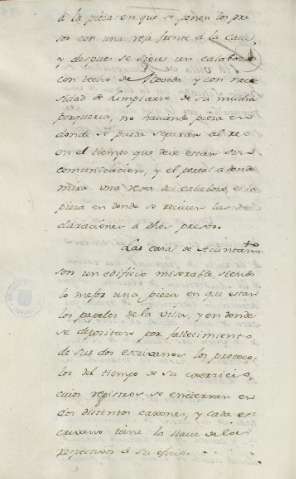 á la pieza en que se ponen los pre
sos con una reja frente á la Calle,
y despues se sigue un calabozo
con techo de y con nece
sidad de limpiarse de su mucha
porqueria, no haviendo pieza en
donde se pueda separar el reo
en el tiempo que deve estar sin
comunicacion, y el portal a donde
mira una reja del calabozo, es la
pieza en donde se reciven las de
claraciones á dhos presos.
Las Casas de Aiuntamto
son un edificio miserable siendo
lo mejor una pieza en que estan
los papeles de la villa, y en donde
se depositan por fallecimiento
de sus dos escrivanos los protoco
los del tiempo de su exercicio,
cuios registros se encierran en
dos distintos caxones, y cada es
crivano tiene la llave de los
pertenecientes á su oficio.